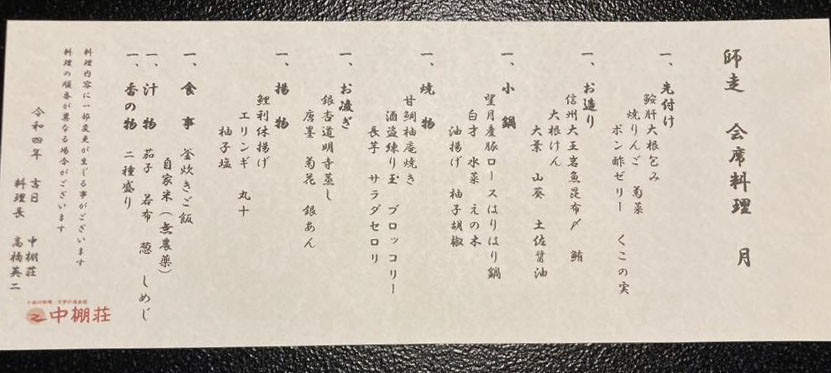 師走　会席料理　月
一、先付け
鮟肝大根包み
焼りんご　菊菜
ポン酢ゼリー　くこの実
一、お造り
信州大王岩魚昆布〆　鮪
大根けん
大葉　山葵　土佐醤油
一、小鍋
望月産豚ロースはりはり鍋
白才　水菜　えの木
油揚げ　柚子胡椒
一、焼物
甘鯛柚庵焼き
酒盗練り玉　ブロッコリー
長芋　サラダセロリ
一、お凌ぎ
銀杏道明寺蒸し
唐墨　菊花　銀あん
一、揚物
鯉利休揚げ
エリンギ　丸十
柚子塩
一、食事　釜炊きご飯
自家米（無農薬）
一、汁物　茄子　若布　葱　しめじ
一、香の物　二種盛り
料理内容に一部変更が生じる事がございます
料理の順番が異なる場合がございます
令和四年　吉日　中棚荘
料理長　高橋英二
中棚荘